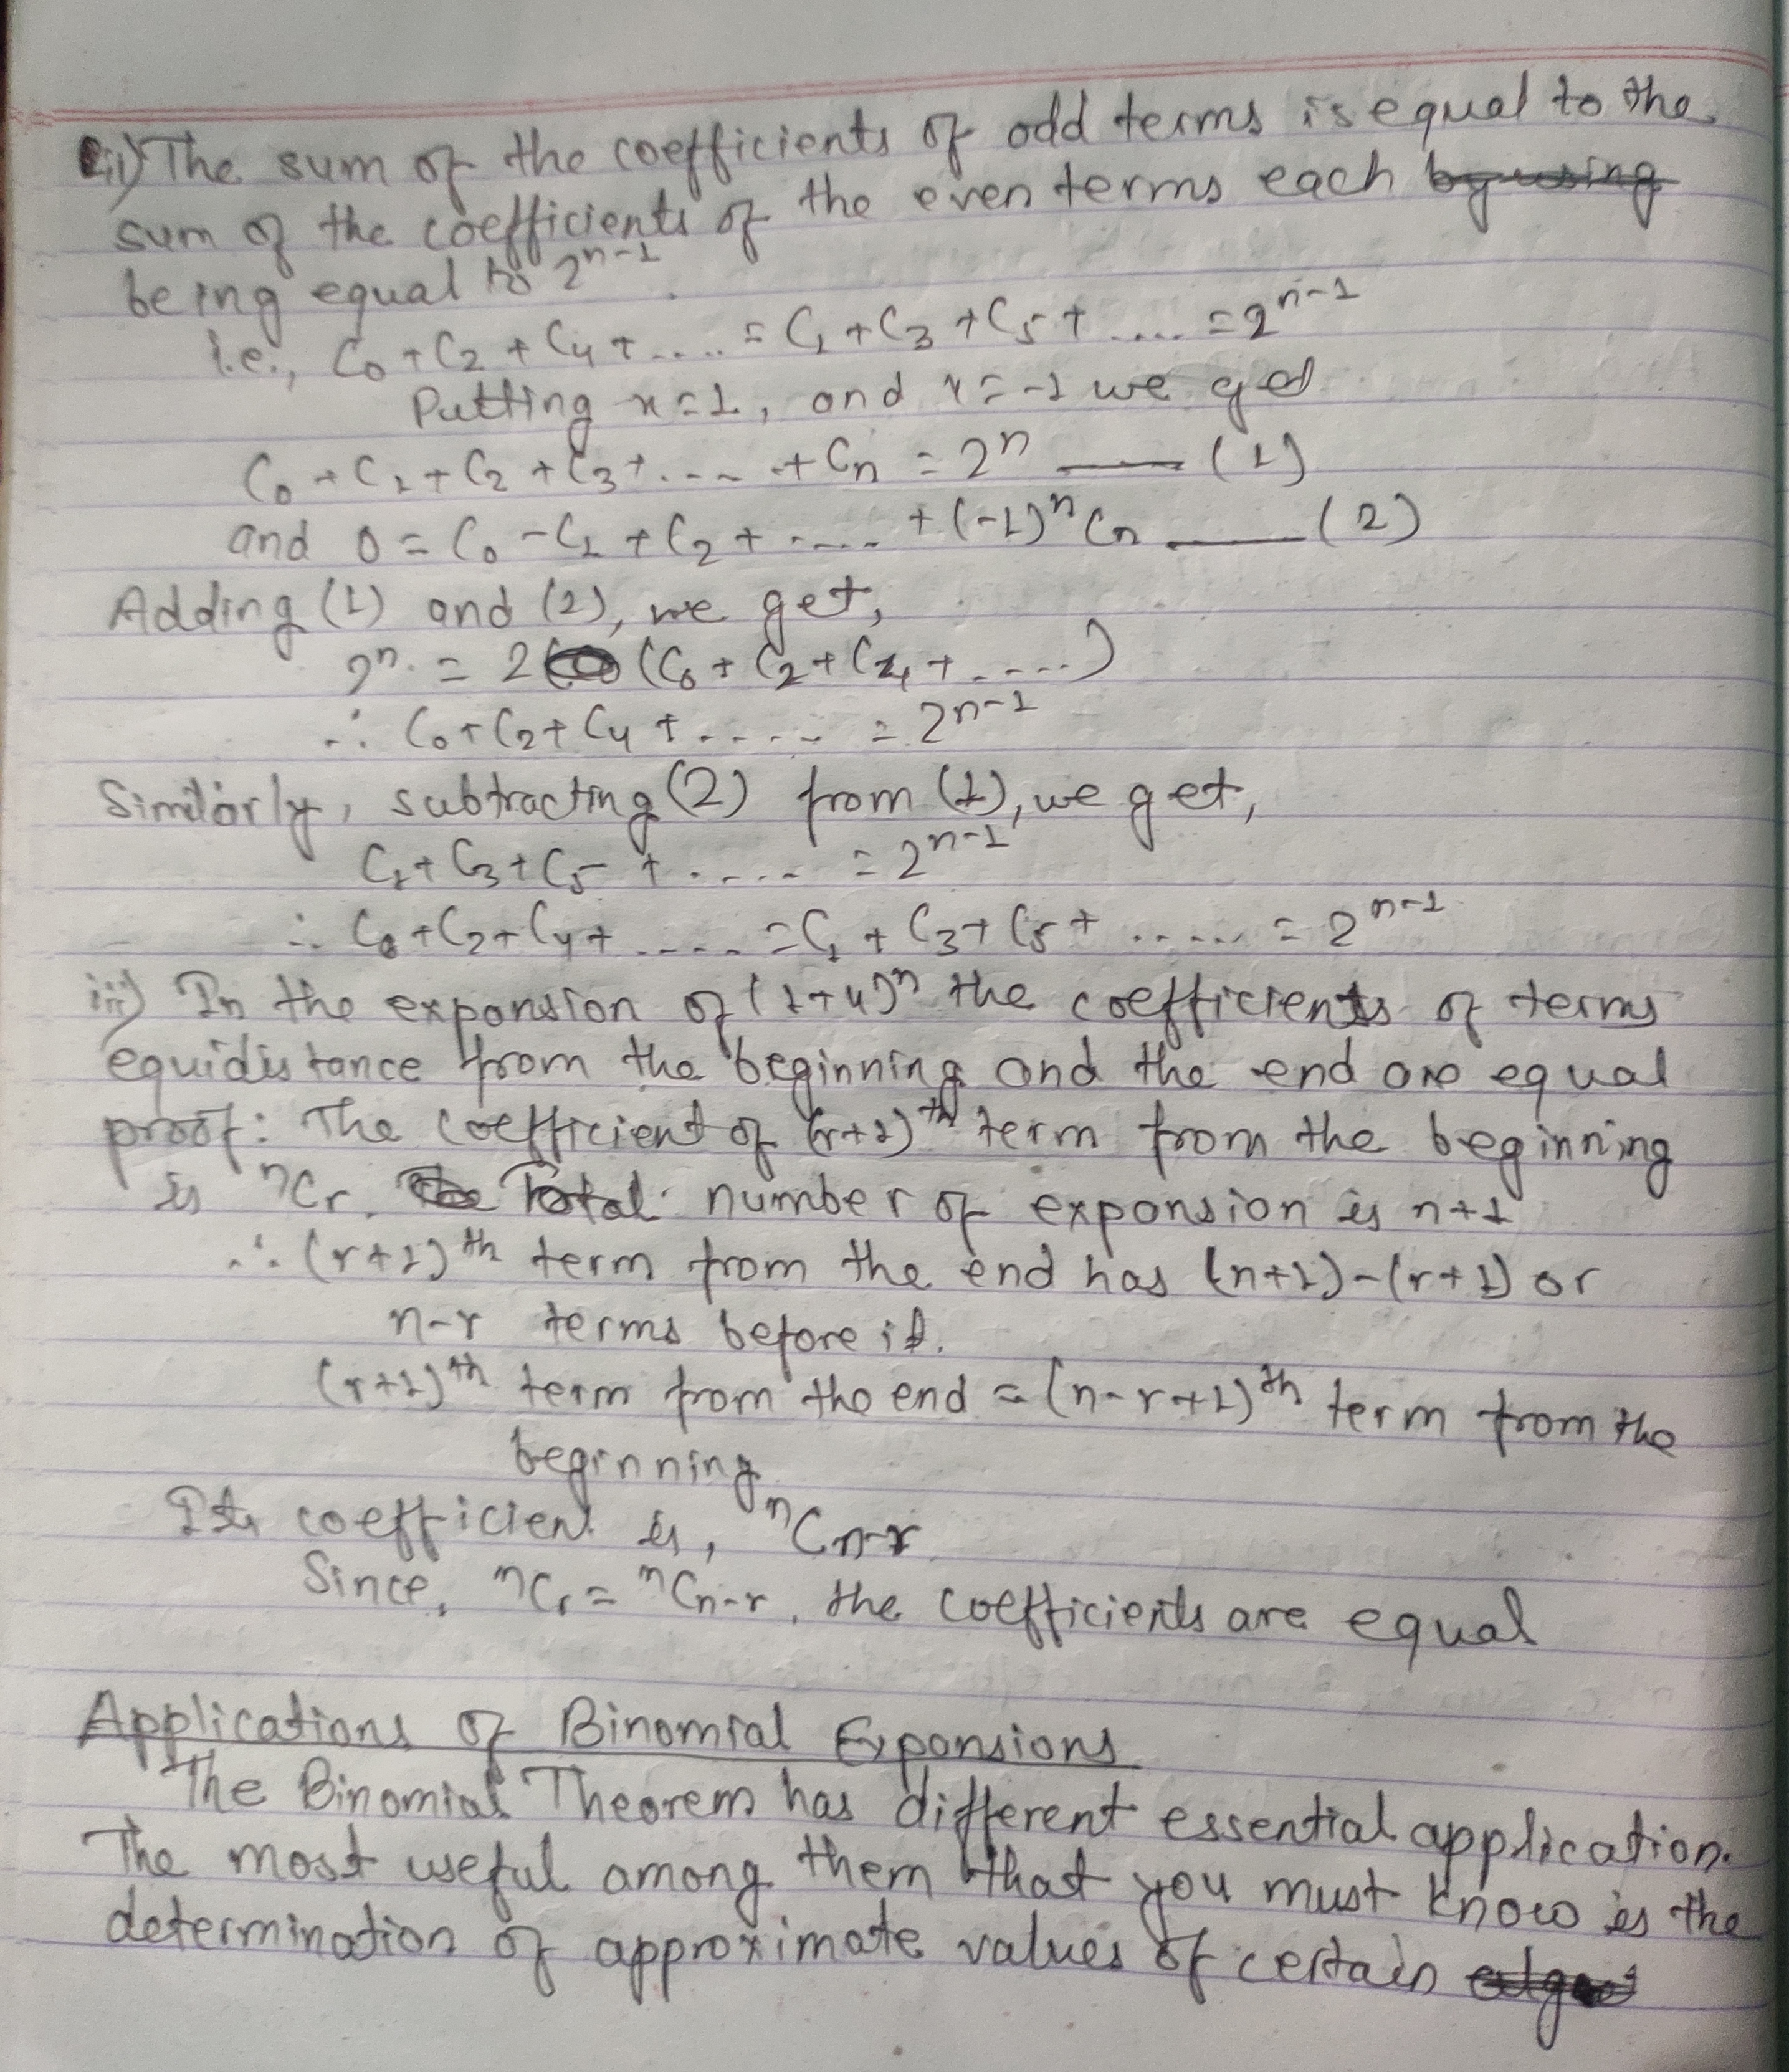 ii) The sum of the coefficients of odd terms is equal to the
sum of the coefficients of the even terms each by using
being equal to 2ⁿ⁻¹.
i.e., C₀ + C₂ + C₄ + ..... = C₁ + C₃ + C₅ + ..... = 2ⁿ⁻¹
Putting x=1, and x=-1 we get
C₀ + C₁ + C₂ + C₃ + ..... + Cₙ = 2ⁿ —— (1)
and 0 = C₀ - C₁ + C₂ + ..... + (-1)ⁿ Cₙ —— (2)
Adding (1) and (2), we get,
2ⁿ = 2 (C₀ + C₂ + C₄ + .....)
∴ C₀ + C₂ + C₄ + ..... = 2ⁿ⁻¹
Similarly, subtracting (2) from (1), we get,
C₁ + C₃ + C₅ + ..... = 2ⁿ⁻¹
∴ C₀ + C₂ + C₄ + ..... = C₁ + C₃ + C₅ + ..... = 2ⁿ⁻¹
iii) In the expansion of (1+x)ⁿ the coefficients of terms
equidistance from the beginning and the end are equal
proof: The coefficient of (r+1)ᵗʰ term from the beginning
is ⁿCr. The Total number of expansion is n+1
∴ (r+1)ᵗʰ term from the end has (n+1)-(r+1) or
n-r terms before it.
(r+1)ᵗʰ term from the end = (n-r+1)ᵗʰ term from the
beginning
Its coefficient is, ⁿCn-r
Since, ⁿCr = ⁿCn-r, the coefficients are equal
Applications of Binomial Expansions
The Binomial Theorem has different essential application.
The most useful among them that you must know is the
determination of approximate values of certain